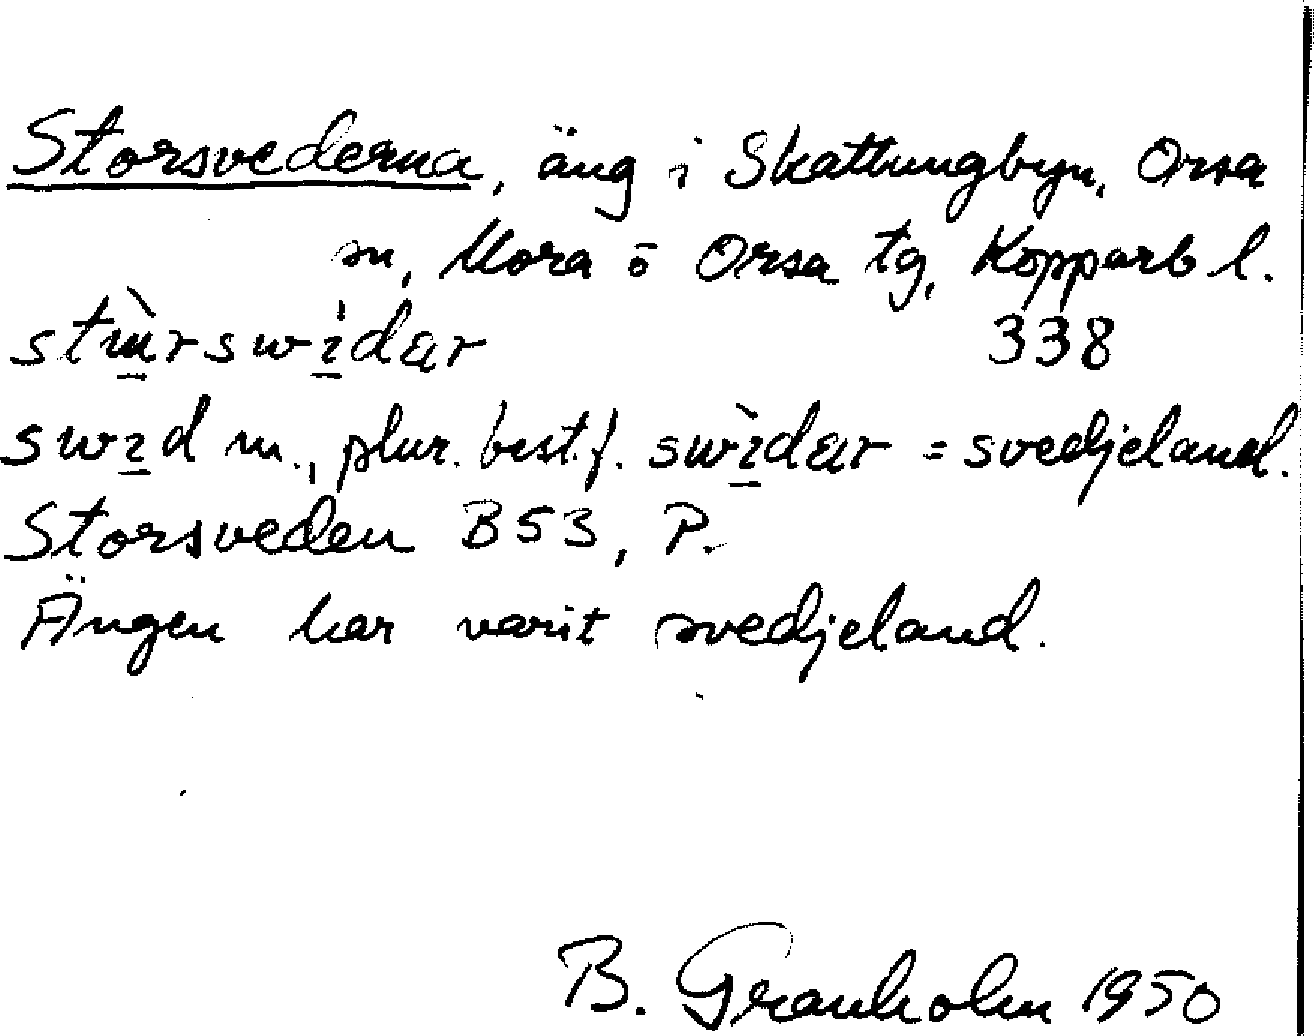 Storsvederna, äng i Skattungbyn, Orsa
sn, Mora o Orsa tg, Kopparb l.
stùrswìdær 338
swid m., plur. best. f. swìdær = svedjeland.
Storsveden B53, P.
Ängen har varit svedjeland.
B. Granholm 1950